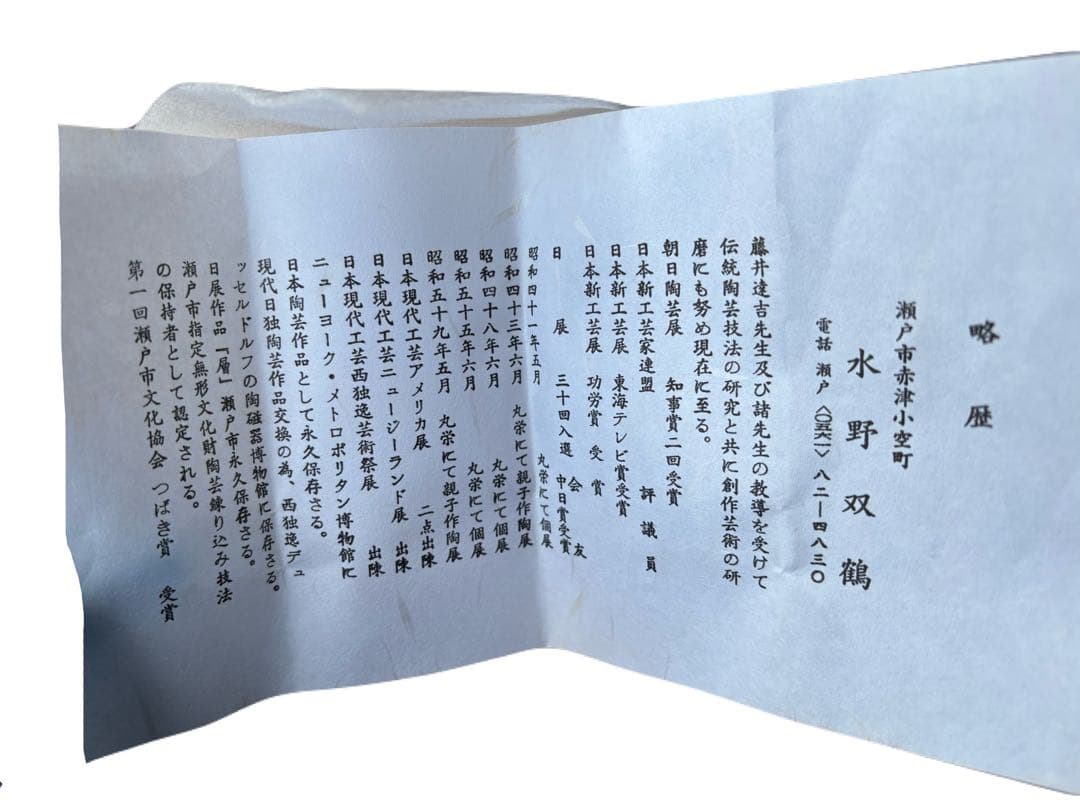 略歴
瀬戸市赤津小空町
水野双鶴
電話 瀬戸 〈〇五六一〉 八二―四八三〇
藤井達吉先生及び諸先生の教導を受けて
伝統陶芸技法の研究と共に創作芸術の研
磨にも努め現在に至る。
朝日陶芸展 知事賞二回受賞
日本新工芸家連盟 評議員
日本新工芸展 東海テレビ賞受賞
日本新工芸展 功労賞 受賞
日展 三十回入選 中日賞受賞 会友
昭和四十一年五月 丸栄にて個展
昭和四十三年六月 丸栄にて親子作陶展
昭和四十八年六月 丸栄にて個展
昭和五十五年六月 丸栄にて個展
昭和五十九年五月 丸栄にて親子作陶展
日本現代工芸アメリカ展 二点出陳
日本現代工芸ニュージーランド展 出陳
日本現代工芸西独逸芸術祭展 出陳
ニューヨーク・メトロポリタン博物館に
日本陶芸作品として永久保存さる。
現代日独陶芸作品交換の為、西独逸デュ
ッセルドルフの陶磁器博物館に保存さる。
日展作品「層」瀬戸市永久保存さる。
瀬戸市指定無形文化財陶芸練り込み技法
の保持者として認定される。
第一回瀬戸市文化協会 つばき賞 受賞